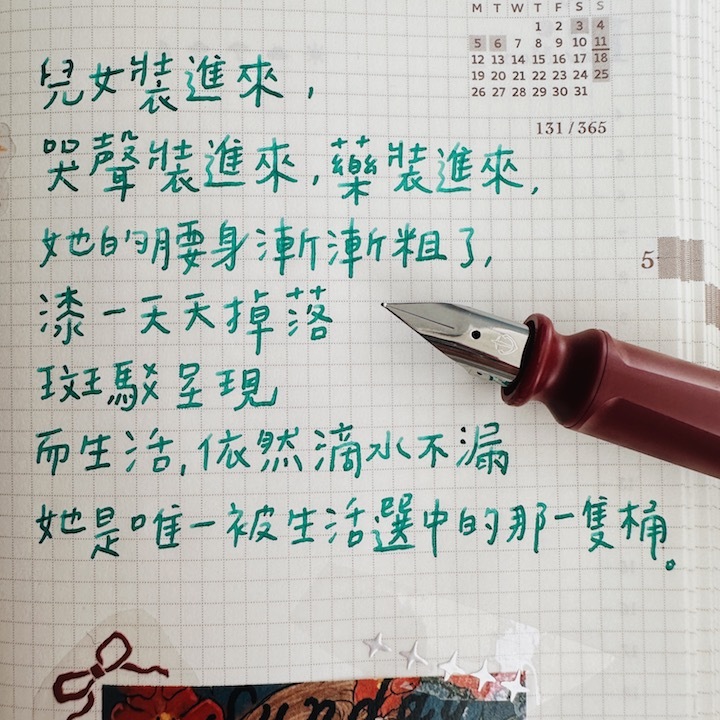 M T W T F S S
1 2 3 4
5 6 7 8 9 10 11
12 13 14 15 16 17 18
19 20 21 22 23 24 25
26 27 28 29 30 31
131/365
兒女裝進來,
哭聲裝進來,藥裝進來,
她的腰身漸漸粗了,
5
漆一天天掉落
斑駁呈現
而生活,依然滴水不漏
她是唯一被生活選中的那一隻桶。
Sunday